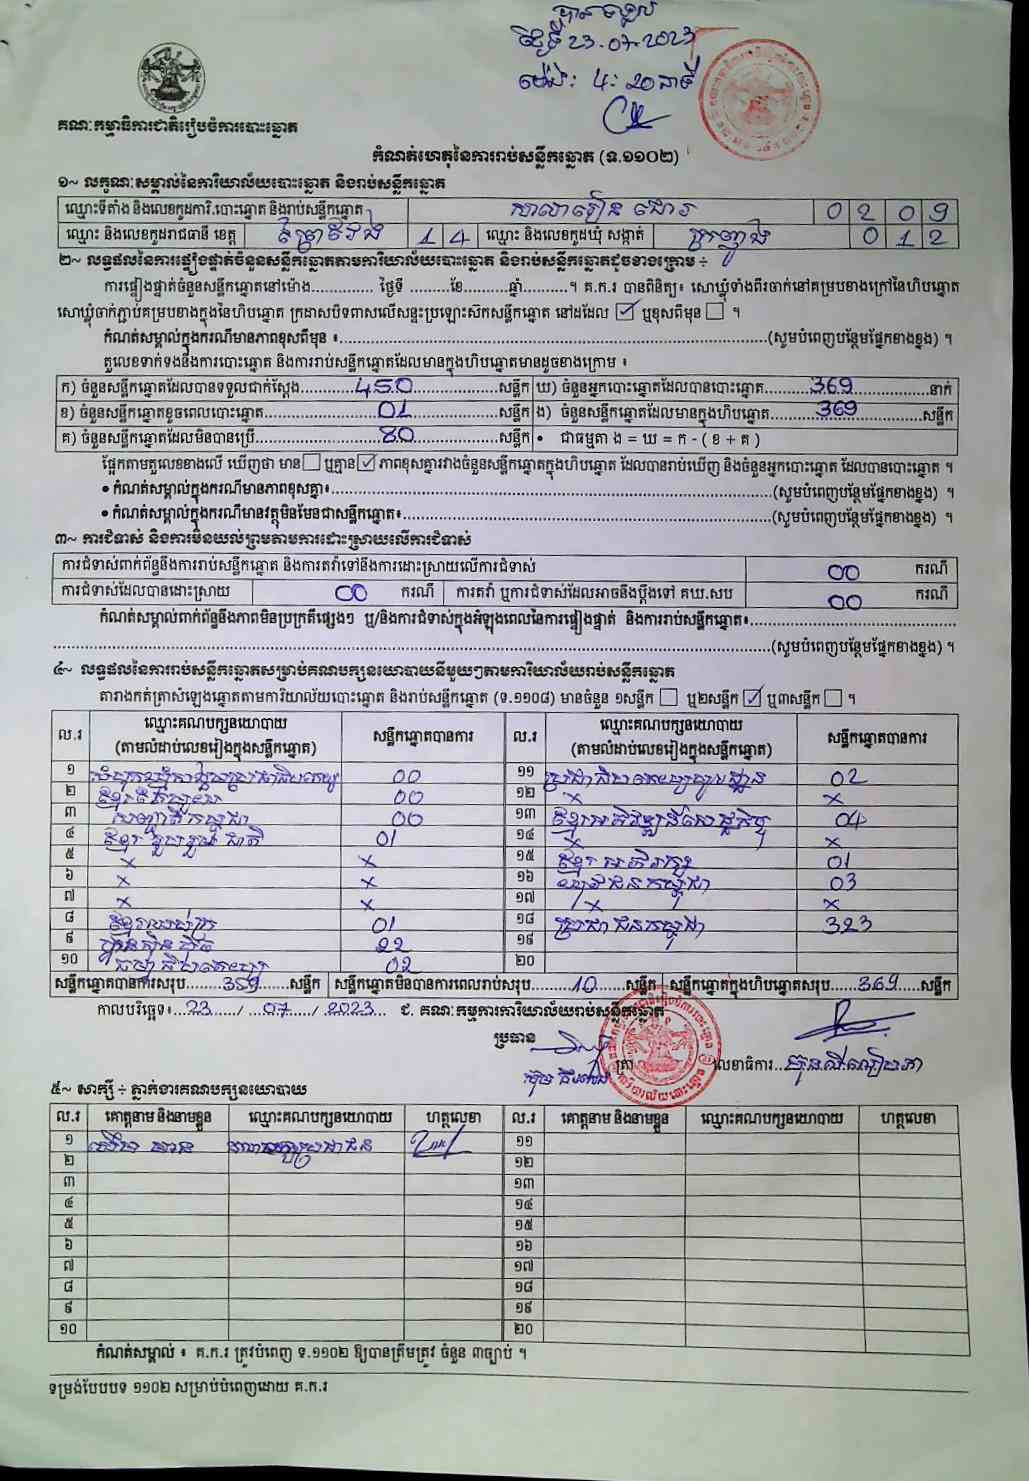 បានចម្លង
ថ្ងៃទី 23.07.2023
ម៉ោង: 4:20 នាទី
គណៈកម្មាធិការជាតិរៀបចំការបោះឆ្នោត
កំណត់ហេតុនៃការរាប់សន្លឹកឆ្នោត (ទ.១១០២)
១~ លក្ខណៈសម្គាល់នៃការិយាល័យបោះឆ្នោត និងរាប់សន្លឹកឆ្នោត
ឈ្មោះទីតាំង និងលេខកូដការិ.បោះឆ្នោត និងរាប់សន្លឹកឆ្នោត សាលារៀន 0209
ឈ្មោះ និងលេខកូដរាជធានី ខេត្ត ព្រៃវែង 14 ឈ្មោះ និងលេខកូដឃុំ សង្កាត់ 012
២~ លទ្ធផលនៃការផ្ទៀងផ្ទាត់ចំនួនសន្លឹកឆ្នោតតាមការិយាល័យបោះឆ្នោត និងរាប់សន្លឹកឆ្នោតដូចខាងក្រោម ÷
ការផ្ទៀងផ្ទាត់ចំនួនសន្លឹកឆ្នោតនៅម៉ោង.............. ថ្ងៃទី ..........ខែ..........ឆ្នាំ..........។ គ.ក.រ បានពិនិត្យ៖ សោឃ្លុំទាំងពីរចាក់នៅគម្របខាងក្រៅនៃហិបឆ្នោត
សោឃ្លុំចាក់ភ្ជាប់គម្របខាងក្នុងនៃហិបឆ្នោត ក្រដាសបិទពាសលើសន្ទះប្រឡោះស៊កសន្លឹកឆ្នោត នៅដដែល ☑ ឬខុសពីមុន ☐ ។
កំណត់សម្គាល់ក្នុងករណីមានភាពខុសពីមុន ៖..........(សូមបំពេញបន្ថែមផ្នែកខាងខ្នង) ។
តួលេខទាក់ទងនឹងការបោះឆ្នោត និងការរាប់សន្លឹកឆ្នោតដែលមានក្នុងហិបឆ្នោតមានដូចខាងក្រោម ៖
ក) ចំនួនសន្លឹកឆ្នោតដែលបានទទួលជាក់ស្តែង..........450..........សន្លឹក ឃ) ចំនួនអ្នកបោះឆ្នោតដែលបានបោះឆ្នោត..........369..........នាក់
ខ) ចំនួនសន្លឹកឆ្នោតខូចពេលបោះឆ្នោត..........01..........សន្លឹក ង) ចំនួនសន្លឹកឆ្នោតដែលមានក្នុងហិបឆ្នោត..........369..........សន្លឹក
គ) ចំនួនសន្លឹកឆ្នោតដែលមិនបានប្រើ..........80..........សន្លឹក • ជាធម្មតា ង = ឃ = ក - ( ខ + គ )
ផ្អែកតាមតួលេខខាងលើ ឃើញថា មាន ☐ ឬគ្មាន ☑ ភាពខុសគ្នារវាងចំនួនសន្លឹកឆ្នោតក្នុងហិបឆ្នោត ដែលបានរាប់ឃើញ និងចំនួនអ្នកបោះឆ្នោត ដែលបានបោះឆ្នោត ។
• កំណត់សម្គាល់ក្នុងករណីមានភាពខុសគ្នា៖..........(សូមបំពេញបន្ថែមផ្នែកខាងខ្នង) ។
• កំណត់សម្គាល់ក្នុងករណីមានវត្ថុមិនមែនជាសន្លឹកឆ្នោត៖..........(សូមបំពេញបន្ថែមផ្នែកខាងខ្នង) ។
៣~ ការជំទាស់ និងការមិនយល់ព្រមតាមការដោះស្រាយលើការជំទាស់
ការជំទាស់ពាក់ព័ន្ធនឹងការរាប់សន្លឹកឆ្នោត និងការតវ៉ាទៅនឹងការដោះស្រាយលើការជំទាស់ 00 ករណី
ការជំទាស់ដែលបានដោះស្រាយ 00 ករណី ការតវ៉ា ឬការជំទាស់ដែលអាចនឹងប្តឹងទៅ គឃ.សប 00 ករណី
កំណត់សម្គាល់ពាក់ព័ន្ធនឹងភាពមិនប្រក្រតីផ្សេងៗ ឬ/និងការជំទាស់ក្នុងអំឡុងពេលនៃការផ្ទៀងផ្ទាត់ និងការរាប់សន្លឹកឆ្នោត៖..........
..........(សូមបំពេញបន្ថែមផ្នែកខាងខ្នង) ។
៤~ លទ្ធផលនៃការរាប់សន្លឹកឆ្នោតសម្រាប់គណបក្សនយោបាយនីមួយៗតាមការិយាល័យរាប់សន្លឹកឆ្នោត
តារាងកត់ត្រាសំឡេងឆ្នោតតាមការិយាល័យបោះឆ្នោត និងរាប់សន្លឹកឆ្នោត (ទ.១១០៨) មានចំនួន ១សន្លឹក ☐ ឬ២សន្លឹក ☑ ឬ៣សន្លឹក ☐ ។
ល.រ ឈ្មោះគណបក្សនយោបាយ (តាមលំដាប់លេខរៀងក្នុងសន្លឹកឆ្នោត) សន្លឹកឆ្នោតបានការ ល.រ ឈ្មោះគណបក្សនយោបាយ (តាមលំដាប់លេខរៀងក្នុងសន្លឹកឆ្នោត) សន្លឹកឆ្នោតបានការ
១ សំបុកឃ្មុំសង្គមប្រជាធិបតេយ្យ 00 ១១ 02
២ 00 ១២ x x
៣ សញ្ជាតិកម្ពុជា 00 ១៣ ខ្មែរអភិវឌ្ឍន៍សេដ្ឋកិច្ច 04
៤ ខ្មែររួបរួមជាតិ 01 ១៤ x x
៥ x x ១៥ ខ្មែរ 01
៦ x x ១៦ យុវជនកម្ពុជា 03
៧ x x ១៧ x x
៨ 01 ១៨ ប្រជាជនកម្ពុជា 323
៩ ហ៊្វុនស៊ិនប៉ិច 22 ១៩
១០ 02 ២០
សន្លឹកឆ្នោតបានការសរុប....359....សន្លឹក សន្លឹកឆ្នោតមិនបានការពេលរាប់សរុប....10....សន្លឹក សន្លឹកឆ្នោតក្នុងហិបឆ្នោតសរុប....369....សន្លឹក
កាលបរិច្ឆេទ៖...23..../...07..../ 2023... ជ. គណៈកម្មការការិយាល័យរាប់សន្លឹកឆ្នោត
ប្រធាន
ត្រា លេខាធិការ...
៥~ សាក្សី ÷ ភ្នាក់ងារគណបក្សនយោបាយ
ល.រ គោត្តនាម និងនាមខ្លួន ឈ្មោះគណបក្សនយោបាយ ហត្ថលេខា ល.រ គោត្តនាម និងនាមខ្លួន ឈ្មោះគណបក្សនយោបាយ ហត្ថលេខា
១ ១១
២ ១២
៣ ១៣
៤ ១៤
៥ ១៥
៦ ១៦
៧ ១៧
៨ ១៨
៩ ១៩
១០ ២០
កំណត់សម្គាល់ ៖ គ.ក.រ ត្រូវបំពេញ ទ.១១០២ ឱ្យបានត្រឹមត្រូវ ចំនួន ៣ច្បាប់ ។
ទម្រង់បែបបទ ១១០២ សម្រាប់បំពេញដោយ គ.ក.រ